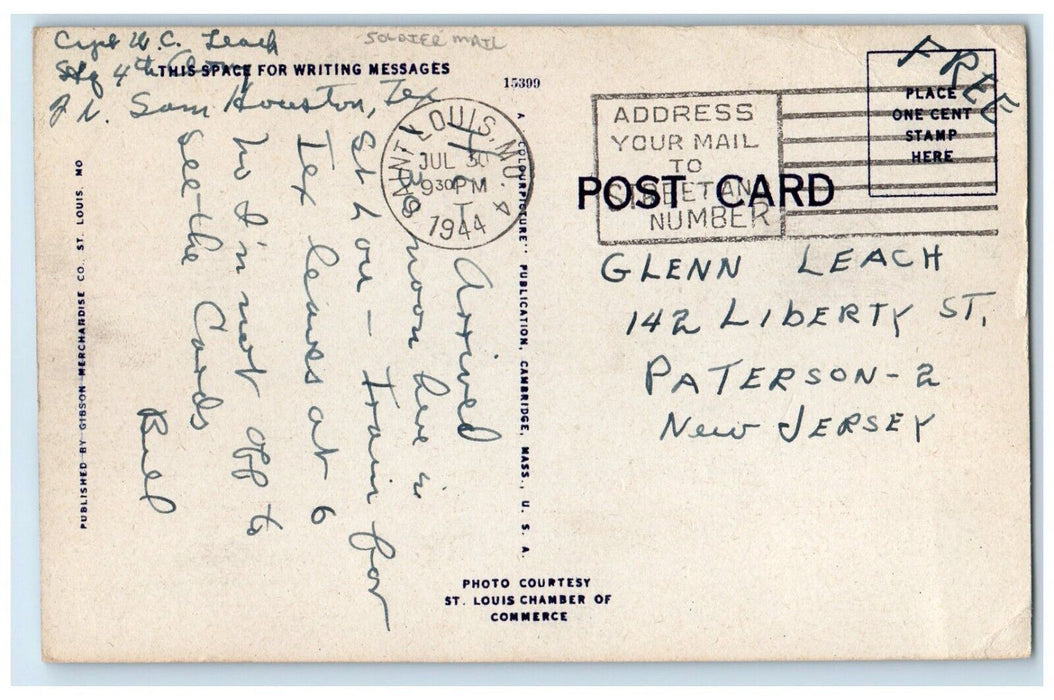 Capt W. C. Leach
Hq 4th Army
Ft. Sam Houston, Tex
SOLDIER MAIL
THIS SPACE FOR WRITING MESSAGES
15399
FREE
PLACE
ONE CENT
STAMP
HERE
ADDRESS
YOUR MAIL
TO
STREET AND
NUMBER
SAINT LOUIS, MO. 4
JUL 30
930PM
1944
POST CARD
Arrived
noon here in
St Lou - train for
Tex leaves at 6
so I'm not off to
see the Cards
Bill
GLENN LEACH
142 LIBERTY ST,
PATERSON - 2
New JERSEY
A "COLOURPICTURE" PUBLICATION, CAMBRIDGE, MASS., U. S. A.
PUBLISHED BY GIBSON MERCHANDISE CO., ST. LOUIS, MO
PHOTO COURTESY
ST. LOUIS CHAMBER OF
COMMERCE